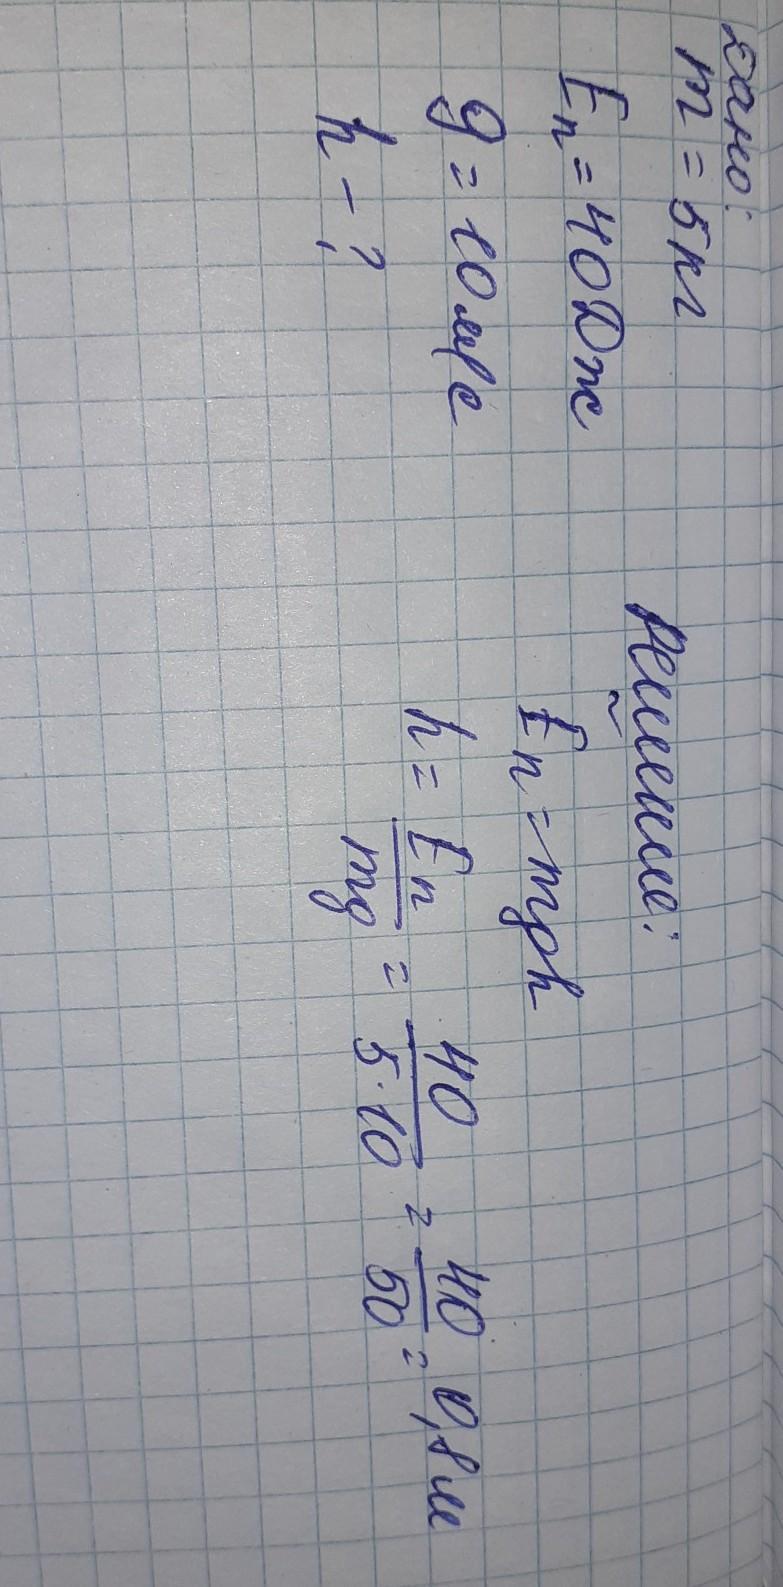 Дано:
m = 5 кг
Eп = 40 Дж
g = 10 м/с
h - ?
Решение:
Eп = mgh
h = Eп/mg = 40/5·10 = 40/50 = 0,8 м